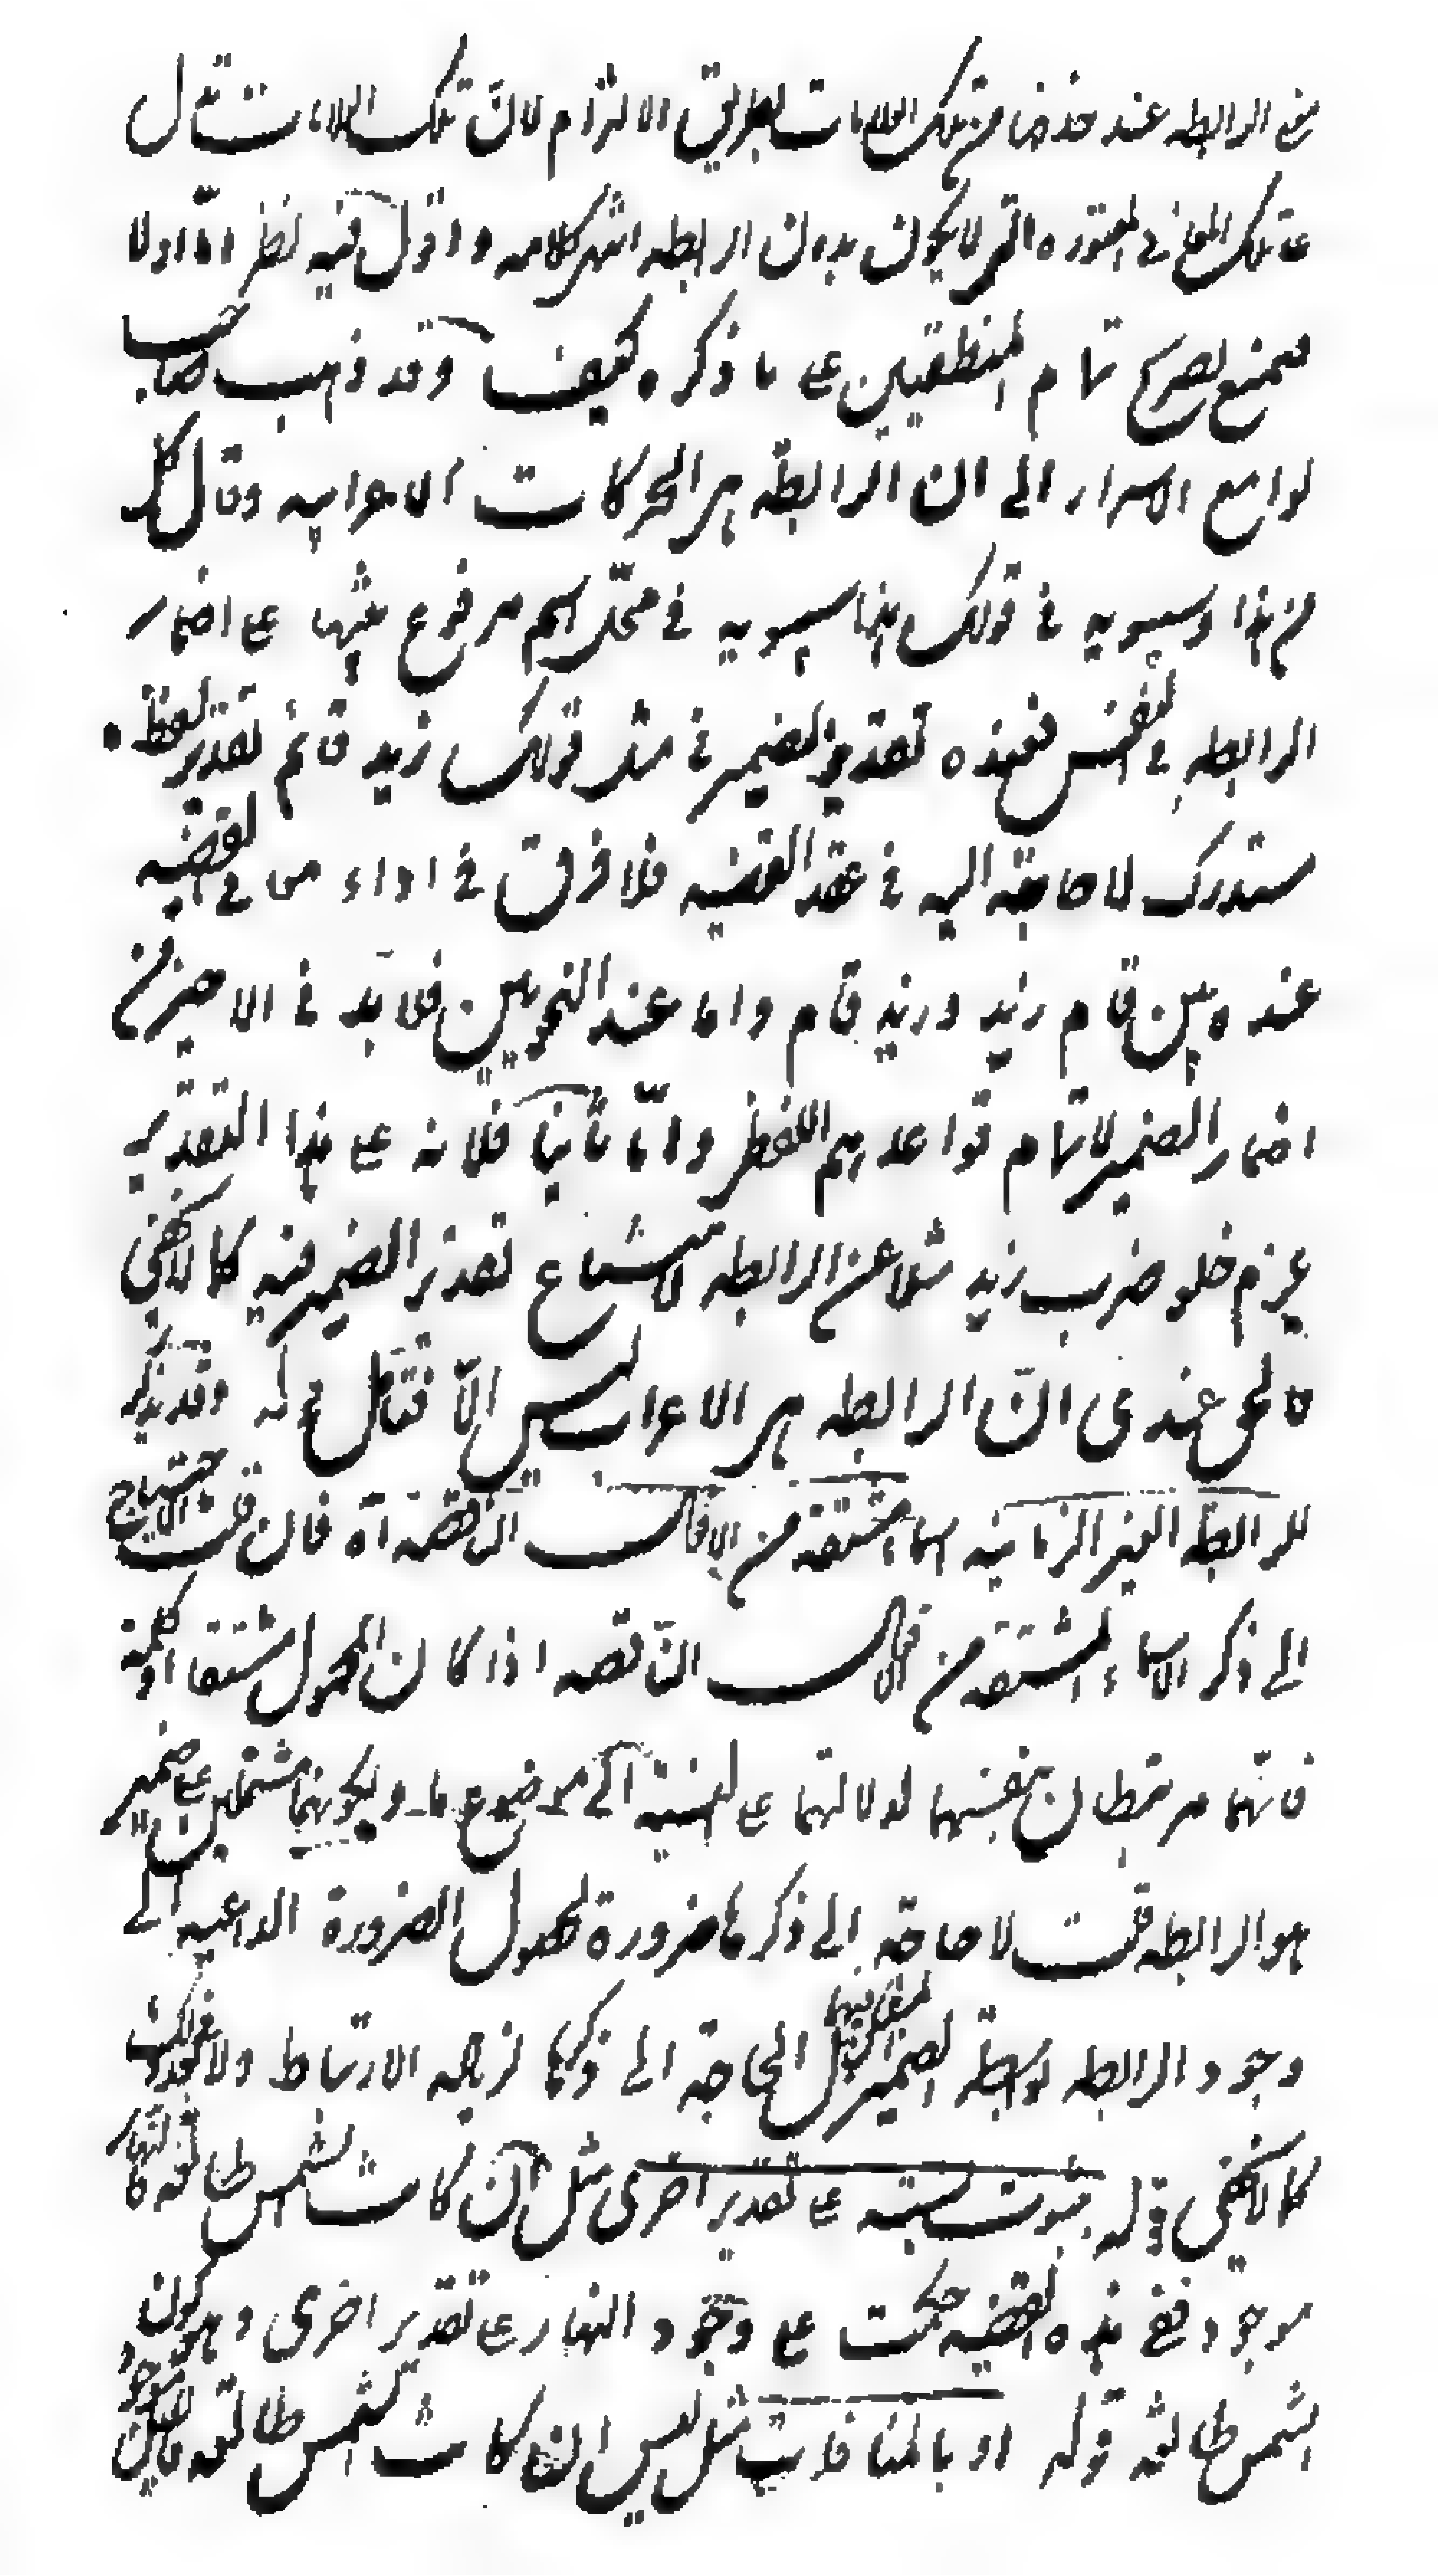 من الرابطه عند حذفها من تلك العلامات بطريق الالتزام لان تلك العلامات تدل
على تلك المعانى المعتوره التى لا يكون بدون الرابطه انتهى كلامه واقول فيه نظر اما اولا
فبمنع تصريح تمام المنطقيين على ما ذكره كيف وقد ذهب صاحب
لوامع الاسرار الى ان الرابطه هى الحركات الاعرابيه وقال كل
من هذا وسيبويه فى قولك هذا سيبويه فى محل اسم مرفوع منبها على اضمار
الرابطه فى النفس فعنده تقدير الضمير فى مثل قولك زيد قائم تقدير لفظ
مستدرك لا حاجة اليه فى عقد القضيه فلا فرق فى اداء معنى القضيه
عنده بين قام زيد وزيد قام واما عند النحويين فلابد فى الاخير من
اضمار الضمير لاتمام قواعدهم اللفظ واما ثانيا فلانه على هذا التقدير
يلزم خلو ضرب زيد مثلا عن الرابطه لامتناع تقدير الضمير فيه كما لا يخفى
والحق عندى ان الرابطه هى الاعراب ليس الا فتأمل قوله وقد يذكر
للرابطة الغير الزمانيه اسماء مشتقه من الافعال الناقصه آه فان قلت الاحتياج
الى ذكر الاسماء المشتقه من الافعال الناقصه اذا كان المحمول مشتقا او كلمة
فانهما مرتبطان بنفسهما لدلالتهما على النسبة الى موضوع ما ويكونهما مشتملين على ضمير
هو الرابطه قلت لا حاجة الى ذكرها ضرورة لحصول الضرورة الداعيه الى
وجود الرابطه بواسطة الضمير بل الحاجة الى ذكرها لزيادة الارتباط ولا
كما لا يخفى قوله بثبوت نسبته على تقدير اخرى مثل ان كانت الشمس طالعه فالنهار
موجود ففى هذه القضيه حكمت على وجود النهار على تقدير اخرى وهو كون
الشمس طالعه قوله او بالمنافات مثل ليس ان كانت الشمس طالعه فالليل موجود